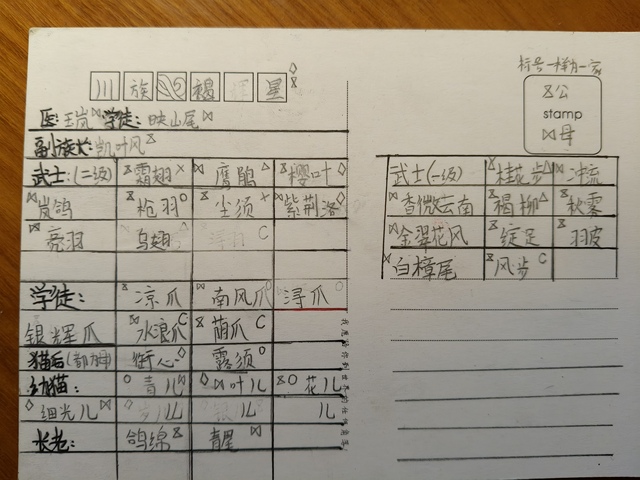 川 族 褐 星
标号一样为一家
医: 王岚 学徒: 映山尾
公
stamp
母
副族长: 凯叶风
武士:(二级) 霜翅 鹰鹃 樱叶
岚鸽 枪羽 尘须 紫荆洛
亮羽 乌翅
学徒: 凉爪 南风爪 浔爪
银辉爪 水浪爪 萌爪
猫后 衔心 露须
幼猫: 青儿 叶儿 花儿
细光儿 儿 儿 儿
长老: 鸽绵 青星
武士(一级) 桂花步 冲流
香微云南 褐柳 秋雾
金翠花风 绽足 羽皮
白樟尾 风步